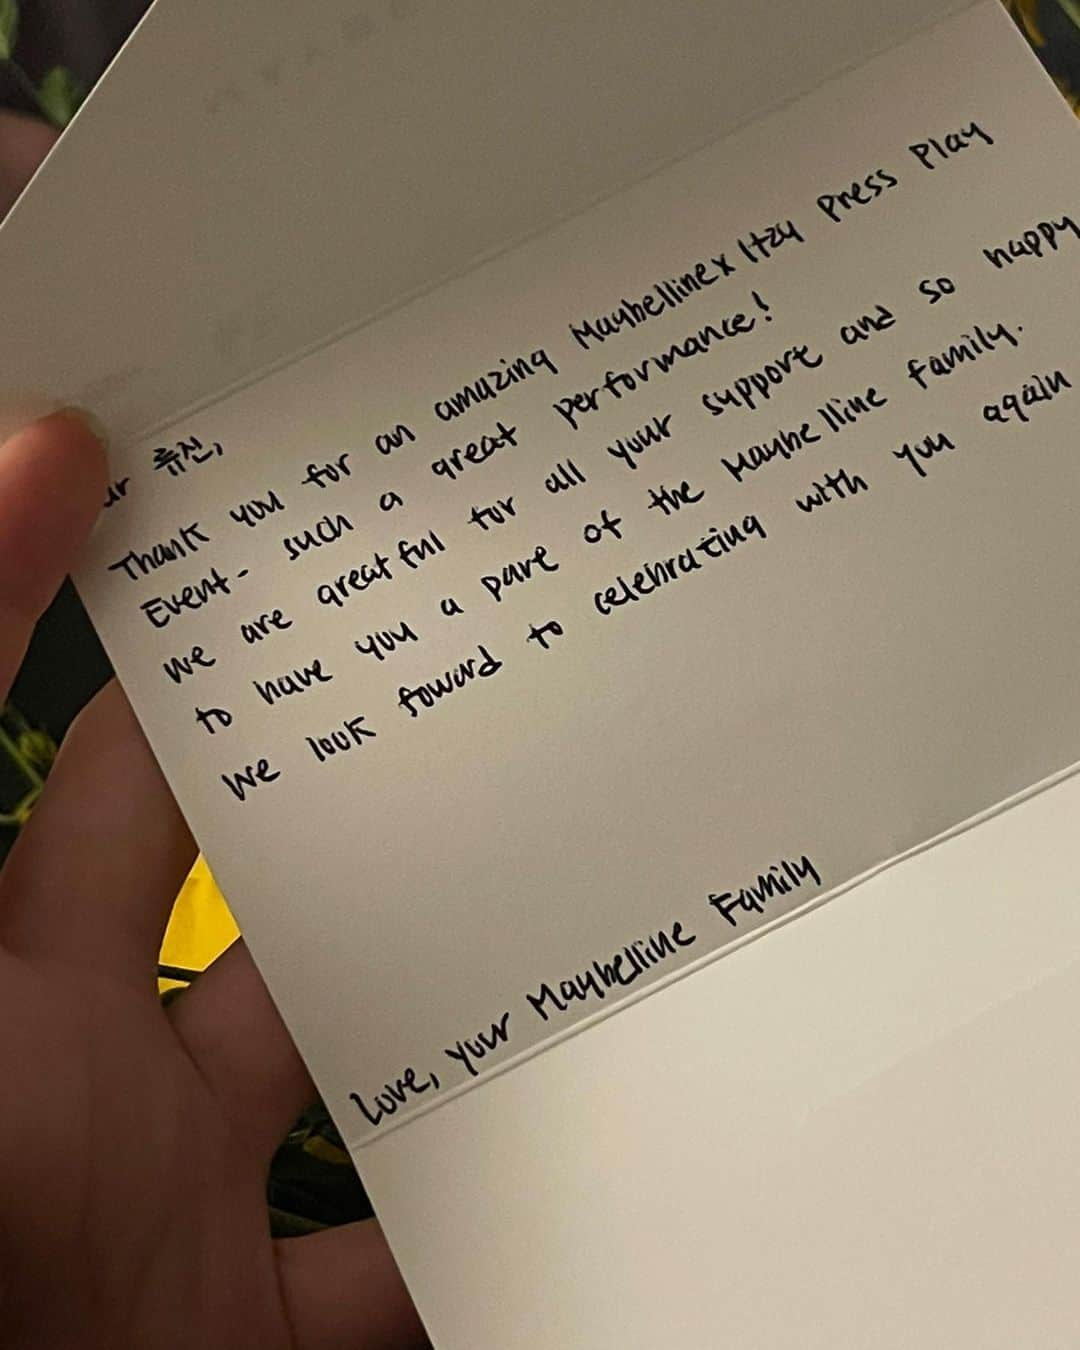 류진,
Thank you for an amazing Maybelline x Itzy Press Play
Event - such a great performance!
We are greatful for all your support and so happy
to have you a part of the Maybelline family.
We look foward to celebrating with you again
Love, your Maybelline Family